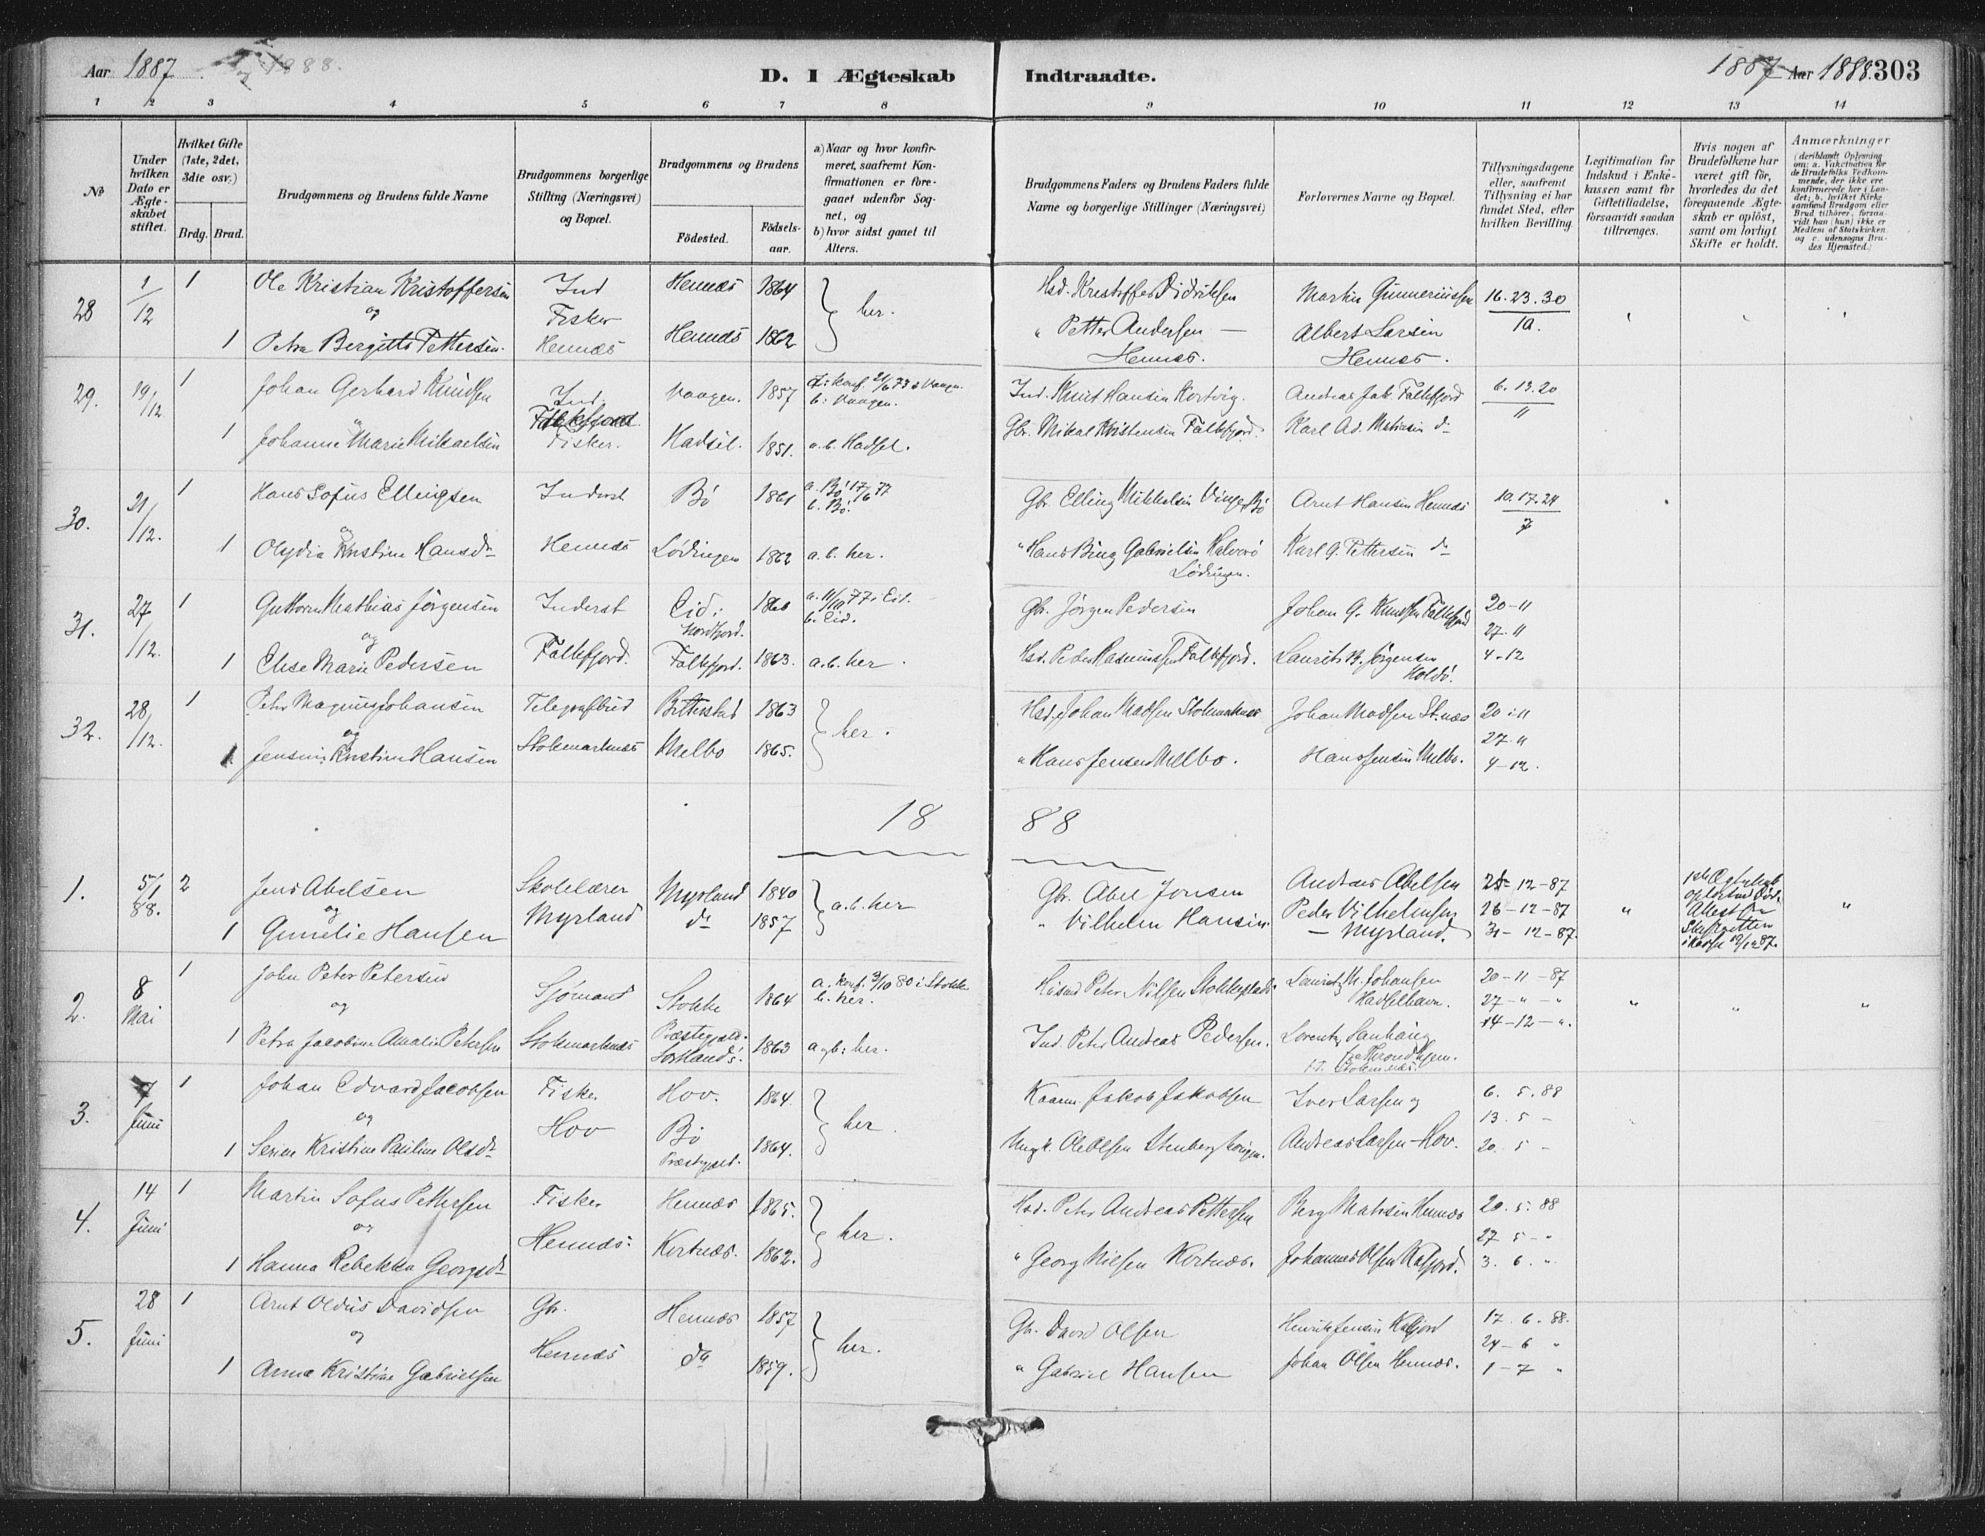 Aar 1887 og 1888.
D. I Ægteskab Indtraadte.
1887 Aar 1888. 303
1 2 3 4 5 6 7 8 9 10 11 12 13 14
No
Under hvilken Dato er Ægteskabet stiftet.
Hvilket Gifte (1ste, 2det, 3die osv.)
Brdg. Brud.
Brudgommens og Brudens fulde Navne
Brudgommens borgerlige Stilling (Næringsvei) og Bopæl.
Brudgommens og Brudens
Fødested.
Fødselsaar.
a) Naar og hvor konfirmeret, saafremt Konfirmationen er foregaaet udenfor Sognet, og
b) hvor sidst gaaet til Alters.
Brudgommens Faders og Brudens Faders fulde Navne og borgerlige Stillinger (Næringsvei)
Forlovernes Navne og Bopæl.
Tillysningsdagene eller, saafremt Tillysning ei har fundet Sted, efter hvilken Bevilling.
Legitimation for Indskud i Enkekassen samt for Giftetilladelse, forsaavidt saadan tiltrænges.
Hvis nogen af Brudefolkene har været gift før, hvorledes da det foregaaende Ægteskab er opløst, samt om lovligt Skifte er holdt.
Anmærkninger
28 1/12 1 Ole Kristian Kristoffersen Ind Hennes 1864 her. Hsd. Kristoffer Didriksen Martin Gunneriussen 16. 23. 30
og Fisker 10.
1 Petra Bergitte Pettersen. Hennes Hennes 1862 " Petter Andersen — Albert Larsen
Hennes. Hennes.
29. 19/12 1 Johan Gerhard Knudsen Ind. Vaagen. 1857 b. Vaagen. Ind. Knut Hansen Andreas Jak. Falkfjord 6. 13. 20
Falkfjord 11
1 Johanne Marie Mikaelsen Fisker. Hadsel. 1851. a.b. Hadsel. Gbr. Mikal Kristensen Falkfjord. Karl Ad. do
30. 21/12. 1 Hans Sofus Ellingsen Inderst Bø 1861 a. Bø 17/6 77 b. Bø. Gbr. Elling Mikkelsen Bø Arnt Hansen Hennes 10. 17. 24
og 7
1 Olydia Kristine Hansdr Hennes Lødingen 1862 a.b. her. " Hans Bing Gabrielsen Karl G. Pettersen do
Lødingen.
31. 27/12. 1 Guttorm Mathias Jørgensen Inderst Eid i Nordfjord. 1860 a. 11/10 77 i Eid. b. Eid. Gbr. Jørgen Pedersen Johan G. Knudsen Falkfjord 20-11
og 27-11
1 Elise Marie Pedersen Falkfjord. Falkfjord. 1863. a.b. her. Hsd. Peder Rasmussen Falkfjord. Laurits B. Jørgensen Holdø. 4-12
32. 28/12. 1 Peter Magnus Johansen Telegrafbud Bitterstad 1863 her. Hsd. Johan Madsen Stokmarknes Johan Madsen St.næs 20-11
og 27-11
1 Jensine Kristine Hansen Stokmarknes Melbo 1865. " Hans Jensen Melbo. Hans Jensen Melbo. 4-12.
18 88
1. 5/1 88. 2 Jens Abelsen Skolelærer Myrland 1840 a.b. her Gbr. Abel Jonsen Andreas Abelsen 25-12-87
og Peder Vilhelmsen 26-12-87 "
1 Gunelie Hansen Myrland do 1857 " Vilhelm Hansen. — Myrland. 31-12-87.
2. 8 Mai 1 John Peter Petersen Sjømand Stokke 1864 a. konf. 3/10 80 i Stokke b. her. Husmd Peter Nilsen Laurits M. Johansen Hadselhavn. 20-11-87
og 27-"-"
1 Petra Jacobine Amalie Petersen Stokmarknes Præstegjeld. Sortlands. 1863 a og b: her. Ind. Peter Andreas Pedersen. Lorentz 14-12-".
3. 7 Juni 1 Johan Edvard Jacobsen Fisker Hov. 1864. her. Kaarm. Jakob Jakobsen Iver Larsen og 6. 5. 88
og 13. 5 -
1 Seren Kristine Pauline Olsdr Hov Bø Præstegjeld. 1864. Ole Olsen Andreas Larsen - Hov. 20. 5 -
4. 14 Juni 1 Martin Sofus Pettersen Fisker Hennes 1865. her. Hsd. Peter Andreas Pettersen Berg Hennes 20. 5. 88
og 27 5 - "
1 Hanna Rebekka Georgsdr Hennes. Kortnæs. 1862. " Georg Nielsen Kortnæs. Johannes Olsen Kalfjord. 3. 6. "
5. 28 Juni 1 Arnt Oldus Davidsen Gbr. Hennes 1857 her. Gbr. David Olsen Henrik Jensen Kalfjord 17. 6. 88.
og 24-6 "
1 Anna Kristine Gabrielsen Hennes do 1859. " Gabriel Hansen Johan Olsen Hennes. 1-7 "